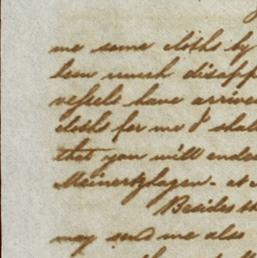 me some cloths by
been much disapp
vessels have arrive
cloths for me I shal
that you will ende
Meinertzhagen - at
Besides
may send me also